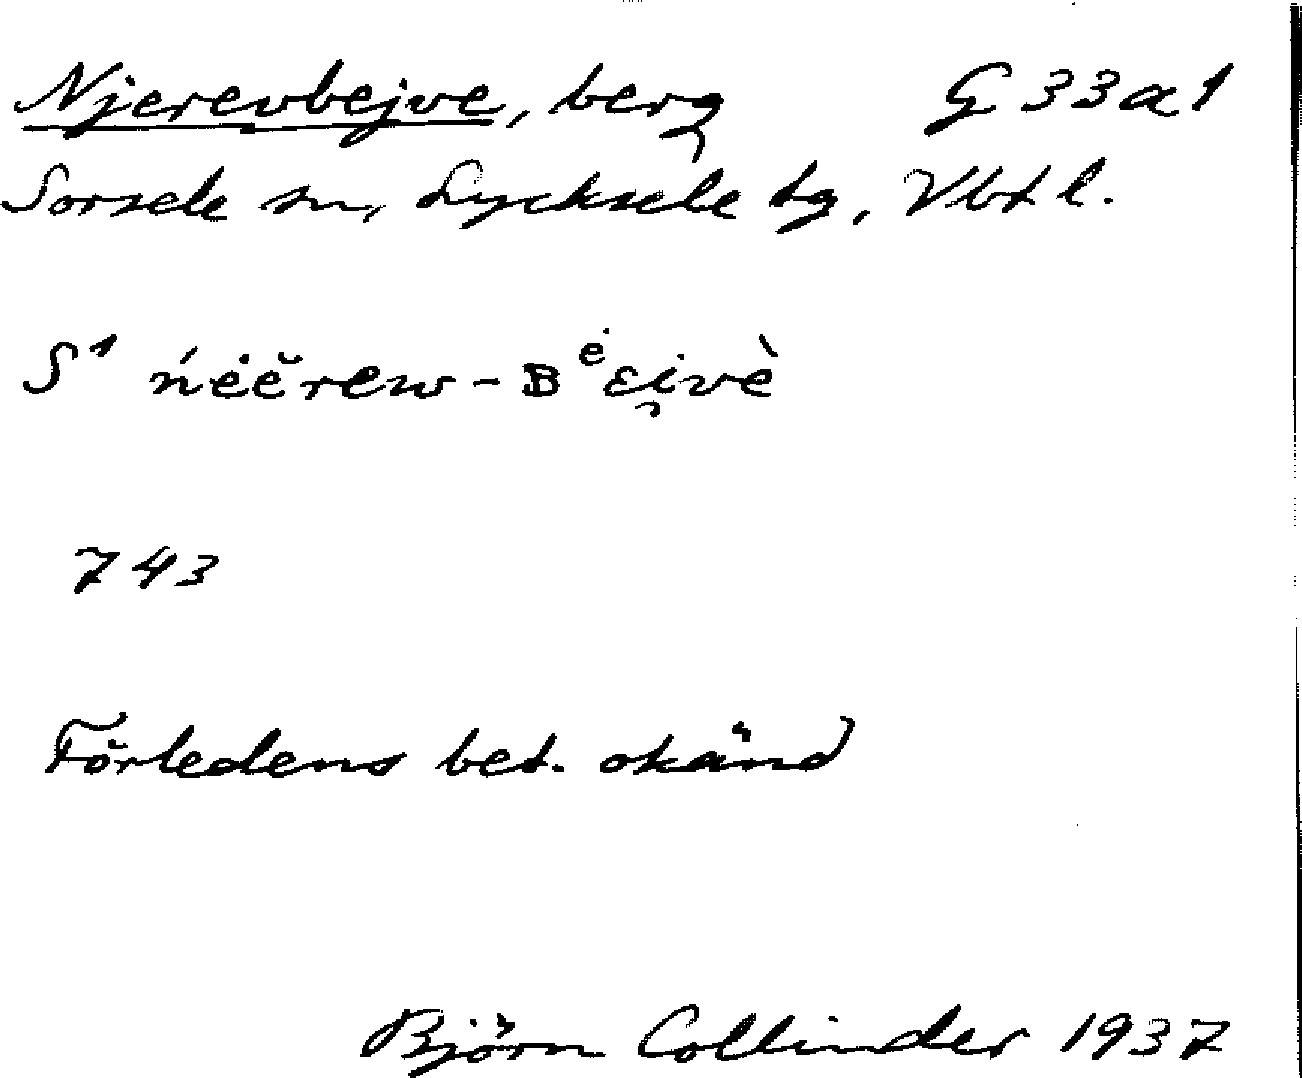 Njerevbejve, berg G 33a1
Sorsele sn, Lycksele tg, Vbtl.
S¹ ńėĕrew-ʙᵉ̇ɛi̯vè
743
Förledens bet. okänd
Björn Collinder 1937